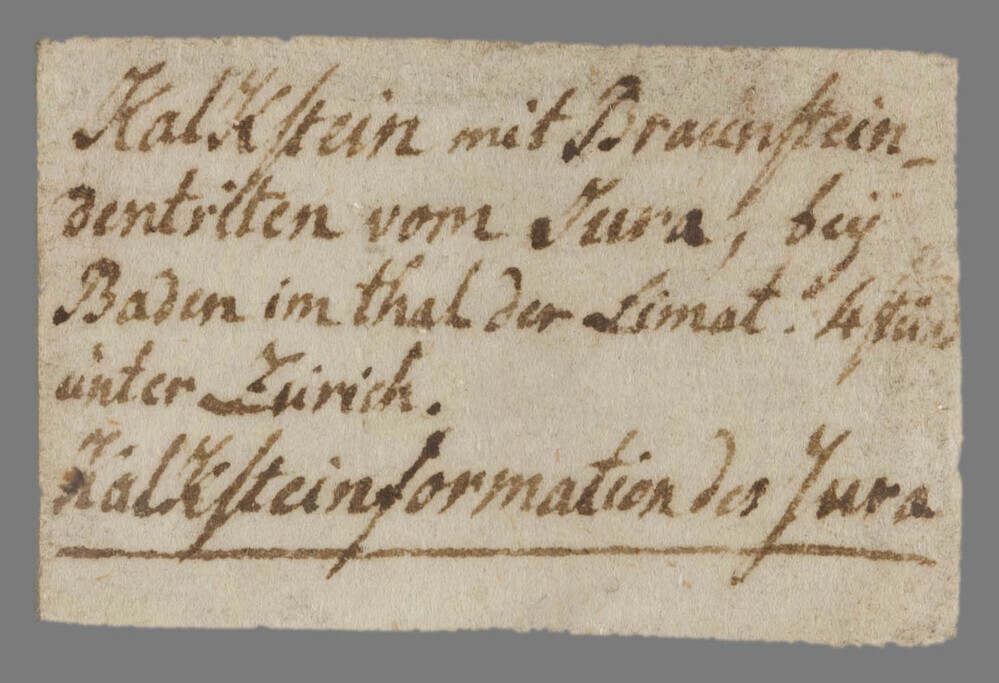 KalKstein mit Braunstein-
dentriten vom Jura, beÿ
Baden im thal der Limat. 4
unter Zürich.
KalKsteinformation des Jura